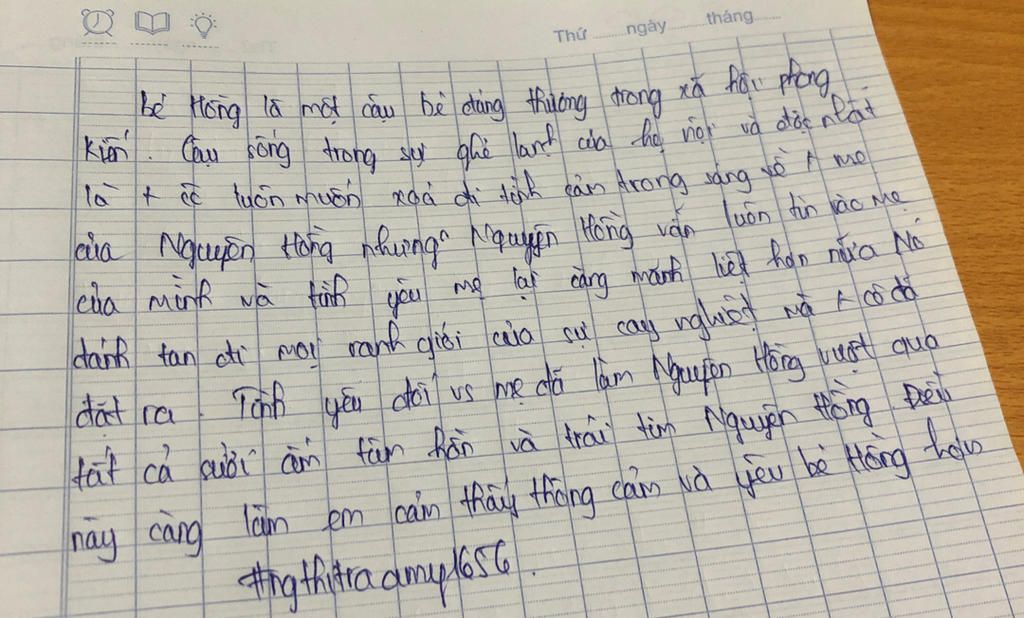 Thứ ngày tháng
bé Hồng là một cậu bé đáng thương trong xã hội phong
kiến. Cậu sống trong sự ghẻ lạnh của họ nội và độc nhất
là + cô luôn muốn xoá đi tình cảm trong sáng về + mẹ
của Nguyên Hồng nhưng Nguyên Hồng vẫn luôn tin vào mẹ
của mình và tình yêu mẹ lại càng mãnh liệt hơn nữa Nó
đánh tan đi mọi ranh giới của sự cay nghiệt mà + cô đã
đặt ra. Tình yêu đối vs mẹ đã làm Nguyên Hồng vượt qua
tất cả sưởi ấm tâm hồn và trái tim Nguyên Hồng. Điều
này càng làm em cảm thấy thông cảm và yêu bé Hồng hơn
#ngthitraamy1656.